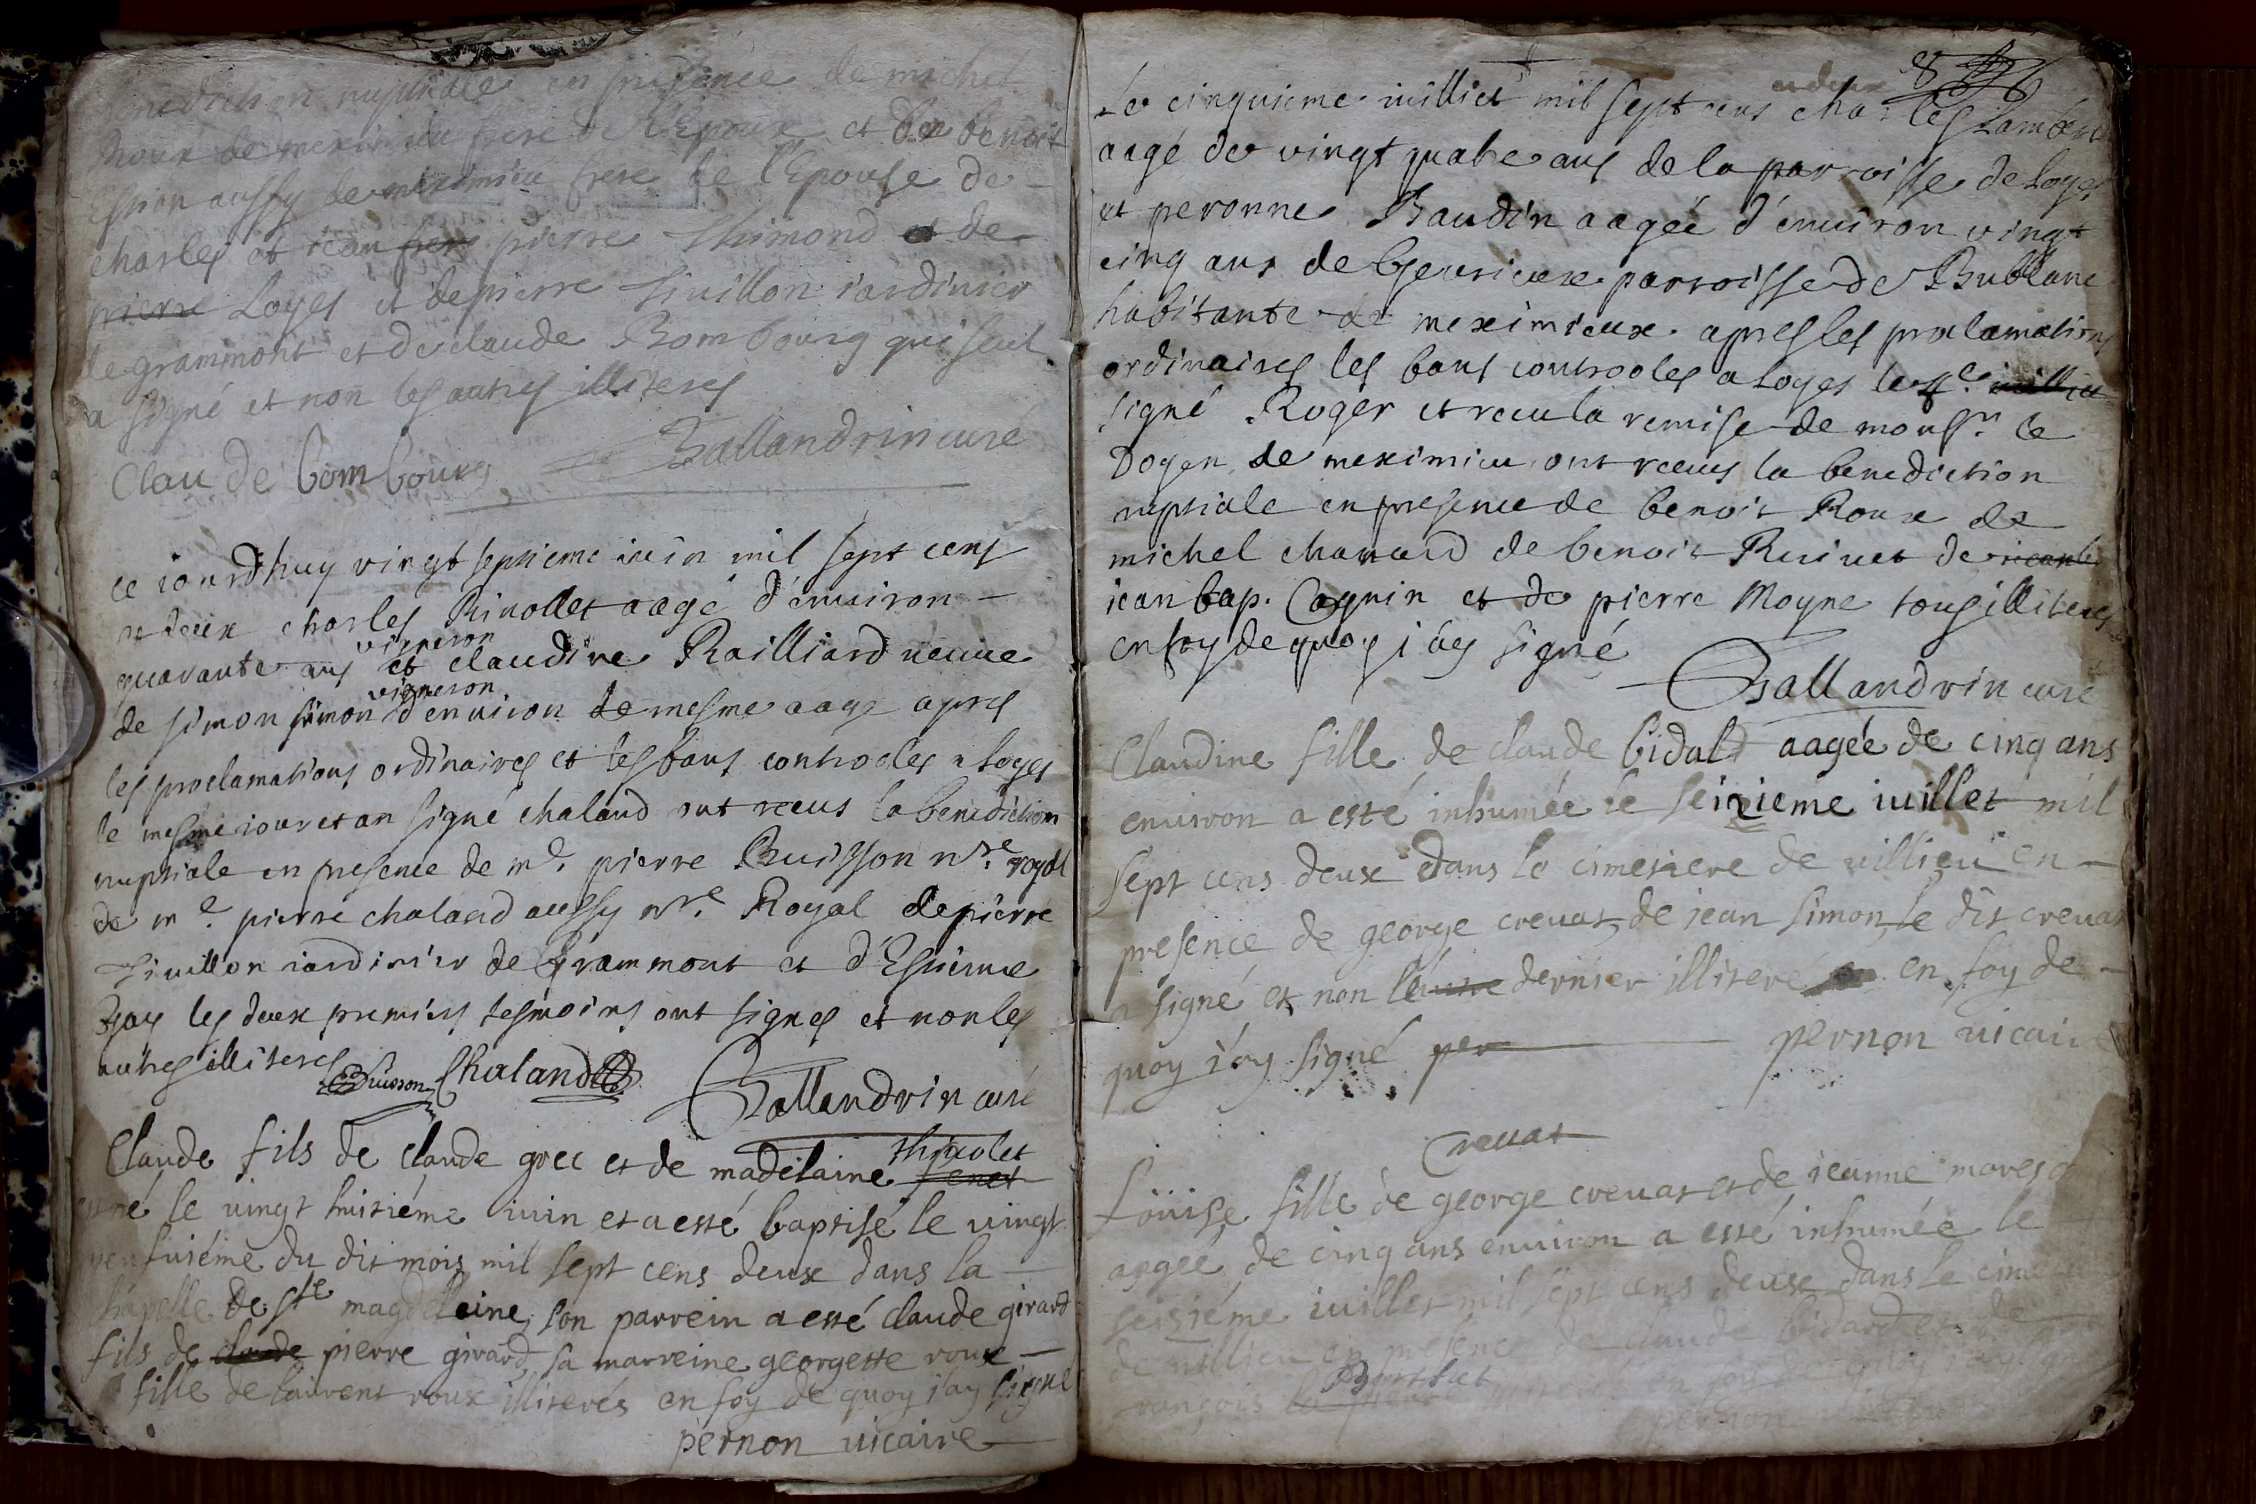 benediction nuptiale en presence de michel
Roux de meximieu frere de l'Epoux et de benoit
Espion aussy de meximieu frere de l'Epouse de
charles et jean frere pierre Thimond et de
pierre Loyes et de pierre Tivillon iardinier
de grammont et de claude Bombourg qui seul
a signé et non les autres illiteres
Claude bombourg Ballandrin curé
ce iourdhuy vingt septieme iuin mil sept cens
et deux charles Rivollet aagé d'environ
vigneron
quarante ans et claudine Railliard veuve
vigneron
de simon simon d'environ de mesme aage apres
les proclamations ordinaires et les bans controoles a Loyes
le mesme iour et an signé chaland ont receus la benediction
nuptiale en presence de me. pierre Buisson nre. royal
de me. pierre chaland aussy nre. Royal de pierre
Tivillon iardinier de Grammont et d'Estienne
Gay les deux premiers tesmoins ont signes et non les
autres illiteres
Buisson Chaland Ballandrin curé
Claude fils de claude grec et de madelaine Thivolet
est né le vingt huitiéme iuin et a esté baptisé le vingt
neufviéme du dit mois mil sept cens deux dans la
chapelle de ste magdelleine, son parrein a esté claude girard
fils de claude pierre girard, sa marreine georgette roux
fille de laurent roux illiterés en foy de quoy i'ay signé
pernon vicaire
8
et deux
Le cinquieme iulliet mil sept cens charles Lambert
aagé de vingt quatre ans de la parroisse de Loyes
et peronne Baudin aagée d'environ vingt
cinq ans de Gevrieux parroisse de Bublane
habitante de meximieux. apres les proclamations
ordinaires les bans controoles a Loyes le 4e. iulliet
signé Roger et receu la remise de monsr. le
Doyen de meximieu ont receus la benediction
nuptiale en presence de benoit Roux de
michel chanard de benoit Rivinet de
iean bap. Cagnin et de pierre Moyne tous illiteres
en foy de quoy i'ay signé
Ballandrin curé
Claudine fille de claude bidald aagée de cinq ans
environ a esté inhumée le seizieme iuillet mil
sept cens deux dans le cimetiere de villieu en
presence de george crevat, de jean simon, le dit crevat
a signé et non l'autre dernier illiteré en foy de
quoy i'ay signé per pernon vicaire
Crevat
Loüise fille de george crevat et de jeanne
aagée de cinq ans environ a esté inhumée le
seiziéme iuillet mil sept cens deux dans le
de villieu en presence de claude bidard et de
françois